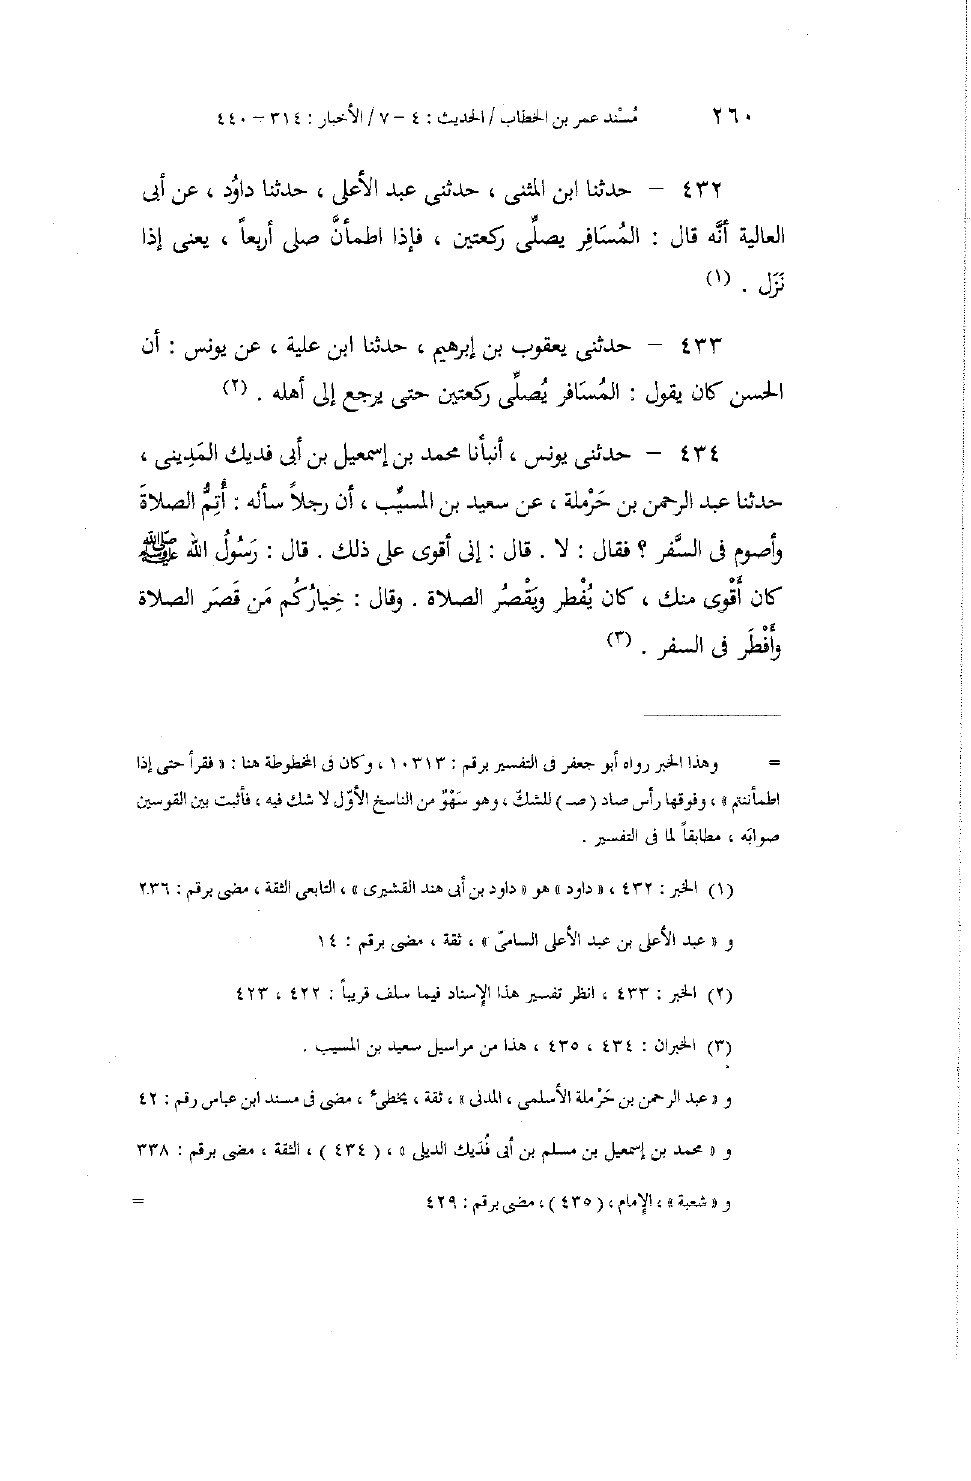 ٢٦٠ مُسْند عمر بن الخطاب / الحديث : ٤ – ٧ / الأخبار : ٣١٤ – ٤٤٠
٤٣٢ – حدثنا ابن المثنى ، حدثنى عبد الأعلى ، حدثنا داوُد ، عن أبى
العالية أنَّه قال : المُسَافِر يصلِّى ركعتين ، فإذا اطمأنَّ صلى أربعاً ، يعنى إذا
نَزَل . (١)
٤٣٣ – حدثنى يعقوب بن إبرهيم ، حدثنا ابن علية ، عن يونس : أن
الحسن كان يقول : المُسَافر يُصلِّى ركعتين حتى يرجع إلى أهله . (٢)
٤٣٤ – حدثنى يونس ، أنبأنا محمد بن إسمعيل بن أبى فديك المَدِينى ،
حدثنا عبد الرحمن بن حَرْملة ، عن سعيد بن المسيَّب ، أن رجلاً سأله : أُتِمُّ الصلاةَ
وأصوم فى السَّفر ؟ فقال : لا . قال : إنى أقوى على ذلك . قال : رَسُولُ الله ﷺ
كان أَقْوى منك ، كان يُفْطر ويَقْصُر الصلاة . وقال : خِيارُكُم مَن قَصَر الصلاة
وأَفْطَر فى السفر . (٣)
= وهذا الخبر رواه أبو جعفر فى التفسير برقم : ١٠٣١٣ ، وكان فى المخطوطة هنا : « فقرأ حتى إذا
اطمأننتم » ، وفوقها رأس صاد ( صـ ) للشكّ ، وهو سَهْوٌ من الناسخ الأوّل لا شك فيه ، فأثبت بين القوسين
صوابَه ، مطابقاً لما فى التفسير .
(١) الخبر : ٤٣٢ ، « داود » هو « داود بن أبى هند القشيرى » ، التابعى الثقة ، مضى برقم : ٢٣٦
و « عبد الأعلى بن عبد الأعلى السامىّ » ، ثقة ، مضى برقم : ١٤
(٢) الخبر : ٤٣٣ ، انظر تفسير هذا الإسناد فيما سلف قريباً : ٤٢٢ ، ٤٢٣
(٣) الخبران : ٤٣٤ ، ٤٣٥ ، هذا من مراسيل سعيد بن المسيب .
و « عبد الرحمن بن حَرْملة الأسلمى ، المدنى » ، ثقة ، يخطىء ، مضى فى مسند ابن عباس رقم : ٤٢
و « محمد بن إسمعيل بن مسلم بن أبى فُدَيك الديلى » ، ( ٤٣٤ ) ، الثقة ، مضى برقم : ٣٣٨
و « شعبة » ، الإمام ، ( ٤٣٥ ) ، مضى برقم : ٤٢٩ =